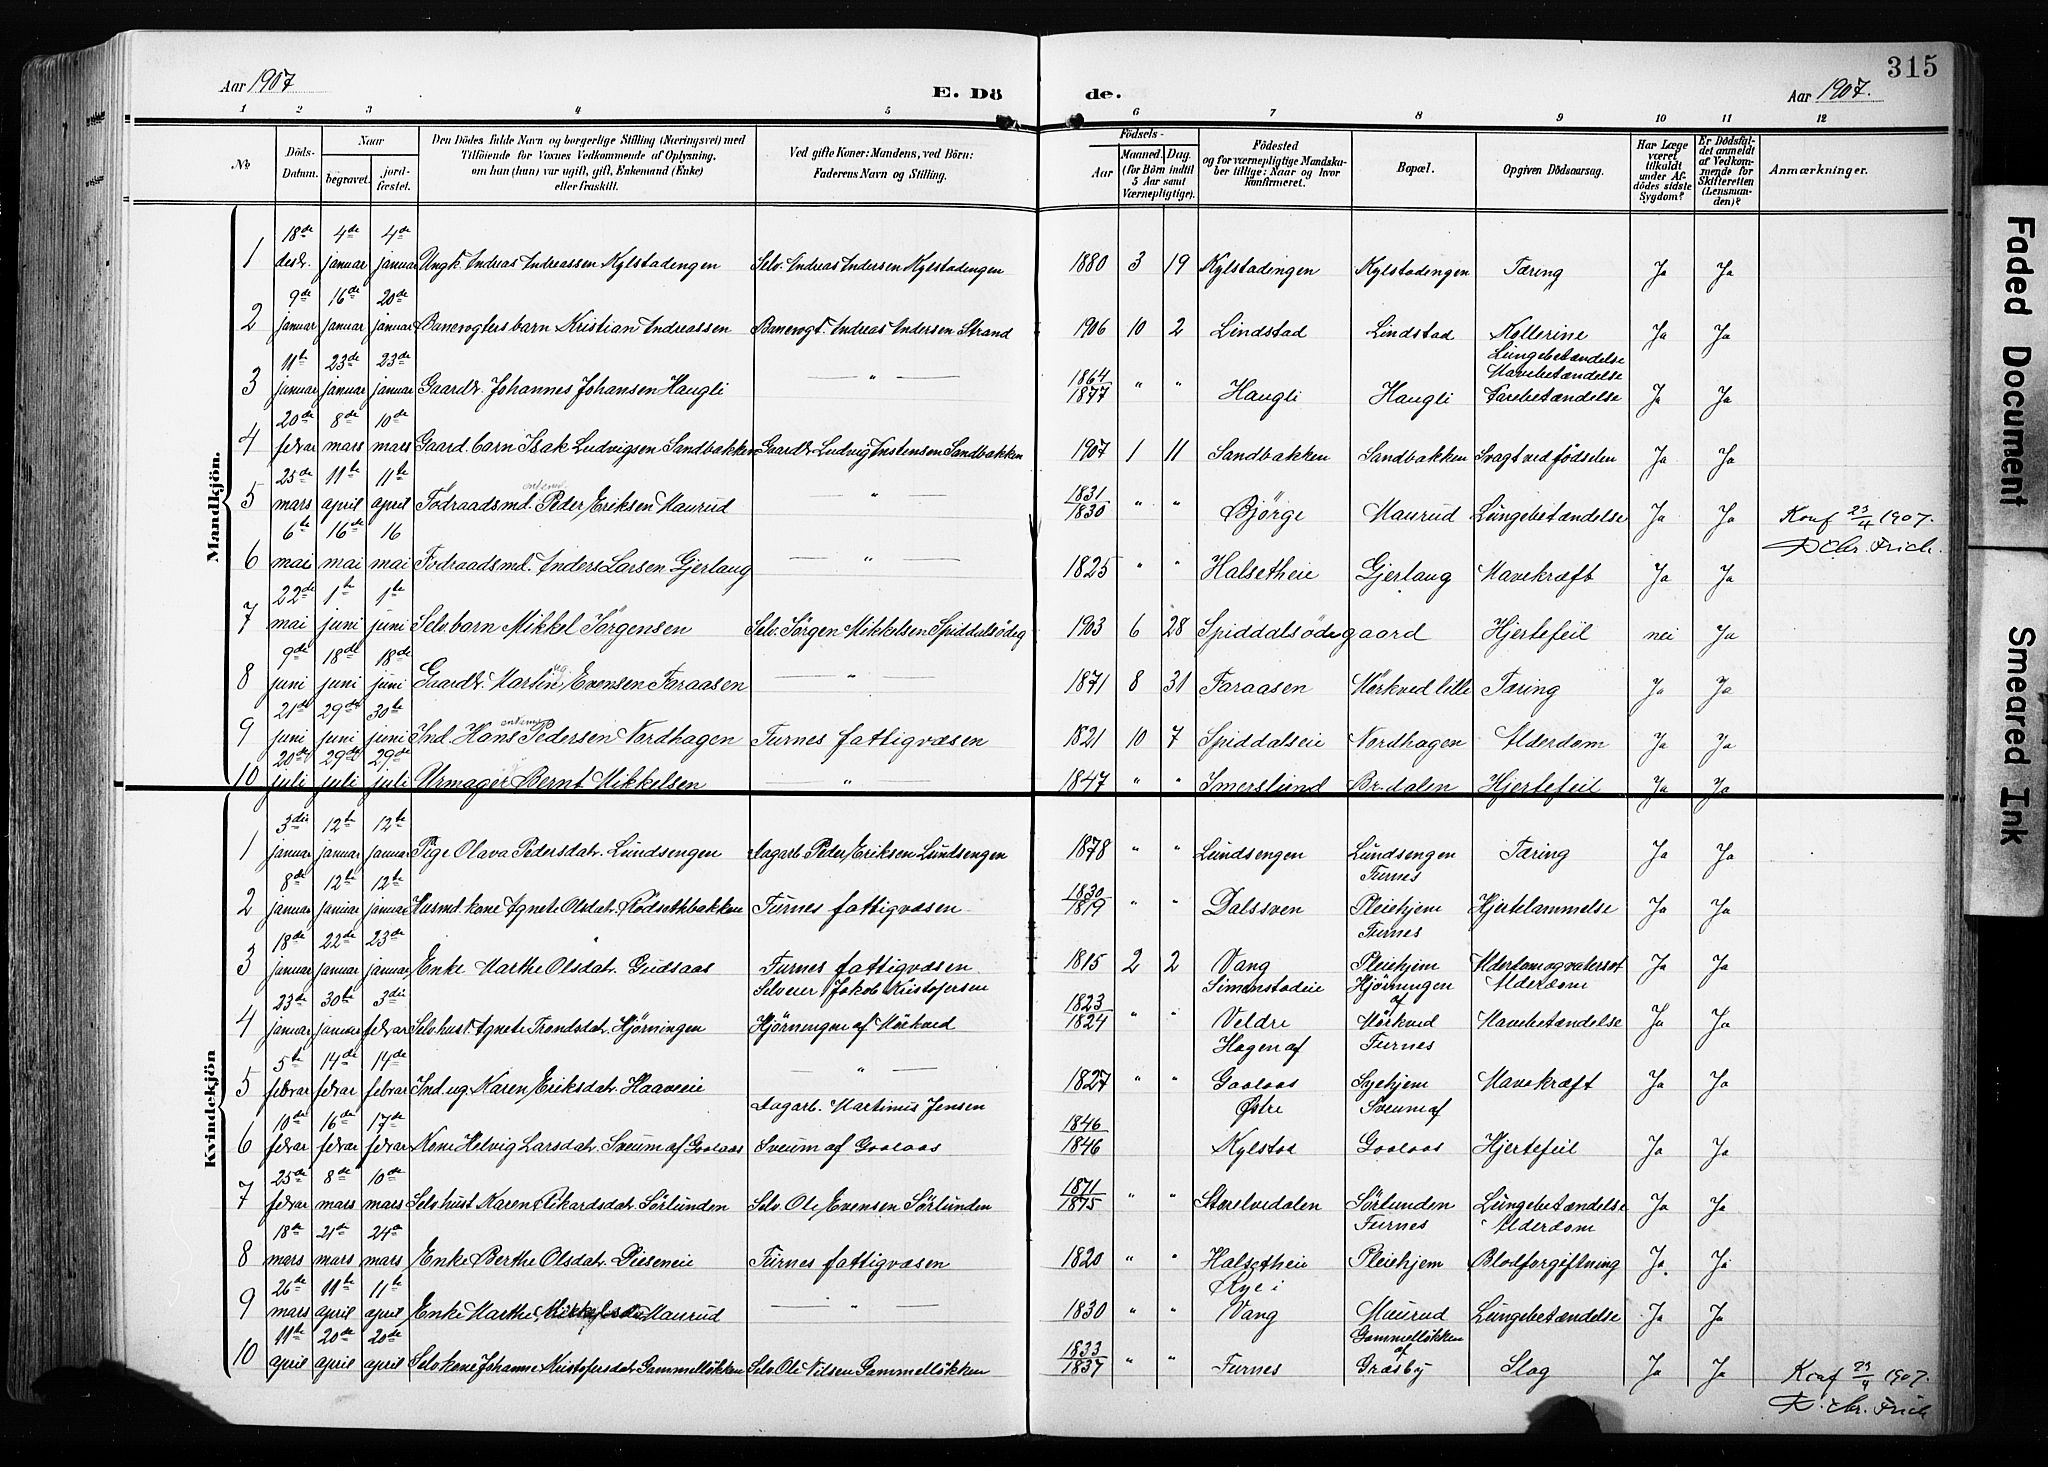 315
Aar 1907
E. Dö de.
Aar 1907.
1 2 3 4 5 6 7 8 9 10 11 12
No
Döds-Datum.
Naar
begravet.
jord-fæstet.
Den Dödes fulde Navn og borgerlige Stilling (Næringsvei) med
Tilföiende for Voxnes Vedkommende af Oplysning,
om han (hun) var ugift, gift, Enkemand (Enke)
eller fraskilt.
Ved gifte Koner: Mandens, ved Börn:
Faderens Navn og Stilling.
Födsels-
Aar
Maaned. Dag.
(for Börn indtil
5 Aar samt
Værnepligtige).
Födested
og for værnepligtige Mandska-
ber tillige: Naar og hvor
konfirmeret.
Bopæl.
Opgiven Dödsaarsag.
Har Læge
været
tilkaldt
under Af-
dödes sidste
Sygdom?
Er Dödsfal-
det anmeldt
af Vedkom-
mende for
Skifteretten
(Lensman-
den)?
Anmærkninger.
Mandkjön.
1 18de desbr. 4de januar 4de januar Ungk. Andreas Andreassen Kylstadengen Selv. Andreas Andersen Kylstadengen 1880 3 19 Kylstadengen Kylstadengen Tæring Ja Ja
2 9de januar 16de januar 20de januar Banevogters barn Kristian Andreassen Banevogt. Andreas Andersen Strand 1906 10 2 Lindstad Lindstad Kollerine Lungebetændelse Ja Ja
3 11te januar 23de januar 23de januar Gaardbr. Johannes Johansen Haugli — " — 1864/1877 " " Haugli Haugli Mavebetændelse Ja Ja
4 20de febvar 8de mars 10de mars Gaard. barn Isak Ludvigsen Sandbakken Gaardbr. Ludvig Sandbakken 1907 1 11 Sandbakken Sandbakken Svagt ved fødselen Ja Ja
5 25de mars 11te april 11te april Fodraadsmd. enkemd Peder Eriksen Maurud — " — 1831/1830 " " Bjørge Maurud Lungebetændelse Ja Ja Konf 23/4 1907.
Chr. Frich.
6 6te mai 16de mai 16 mai Fodraadsmd. Anders Larsen Gjerlaug — " — 1825 " " Halsetheie Gjerlaug Mavekræft Ja Ja
7 22de mai 1te juni 1te juni Selv. barn Mikkel Jørgensen Selv. Jørgen Mikkelsen Spiddalsødeg 1903 6 28 Spiddalsødegaard Hjertefeil nei Ja
8 9de juni 18de juni 18de juni Gaardbr. Martin ug Evensen Faraasen — " — 1871 8 31 Faraasen Mørkved lille Tæring Ja Ja
9 21de juni 29de juni 30te juni Ind. Hans enkemd Pedersen Nordhagen Furnes fattigvæsen 1821 10 7 Spiddalseie Nordhagen Alderdom Ja Ja
10 20de juli 29de juli 29de juli Urmager Bernt Mikkelsen — " — 1847 " " Imerslund Br.dalen Hjertefeil Ja Ja
Kvindekjön
1 3die januar 12te januar 12te januar Pige Olava Pedersdatr. Lundsengen Dagarb. Peder Eriksen Lundsengen 1878 " " Lundsengen Lundsengen Tæring Ja Ja
2 8de januar 12te januar 12te januar Husmd. kone Agnete Olsdatr. Rødsethbakken Furnes fattigvæsen 1830/1819 " " Dalssven Furnes Pleiehjem Hjertelammelse Ja Ja
3 18de januar 22de januar 23de januar Enke Marthe Olsdatr. Gudsaas Furnes fattigvæsen 1815 2 2 Vang Furnes Pleiehjem Alderdom og vatersot Ja Ja
4 23de januar 30te januar 3die febvar Selv. hust. Agnete Trondsdatr. Hjørningen Selveier Jakob Kristofersen Hjørningen af Mørkved 1823/1824 " " Simenstadeie Veldre Hjørningen af Mørkved Alderdom Mavebetændelse Ja Ja
5 5te febvar 14de febvar 14de febvar Ind. ug. Karen Eriksdatr. Haaveeie — " — 1827 " " Hagen af Gaalaas Furnes Sygehjem Mavekræft Ja Ja
6 10de febvar 16de febvar 17de febvar Kone Helvig Larsdatr. Sveum af Gaalaas Dagarb. Martinus Jensen Sveum af Gaalaas 1846/1846 Østre Kylstad Sveum af Gaalaas Hjertefeil Ja Ja
7 25de febvar 8de mars 10de mars Selv. hust Karen Rikardsdatr. Sørlunden Selv. Ole Evensen Sørlunden 1871/1875 " " Storelvedalen Sørlunden Lungebetændelse Ja Ja
8 18de mars 21de mars 24de mars Enke Berthe Olsdatr. Dieseneie Furnes fattigvæsen 1820 " " Halsetheie Furnes Pleiehjem Alderdom Blodforgiftning Ja Ja
9 26de mars 11te april 11te april Enke Marthe Maurud — " — 1830 " " Rye i Vang Maurud Lungebetændelse Ja Ja
10 11te april 20de april 20de april Selv. kone Johanne Kristofersdatr. Gammelløkken Selv. Ole Nilsen Gammelløkken 1833/1837 " " Furnes Gammelløkken af Græsby Slag Ja Ja Konf 23/4 1907.
Chr. Frich
Faded Document
Smeared Ink